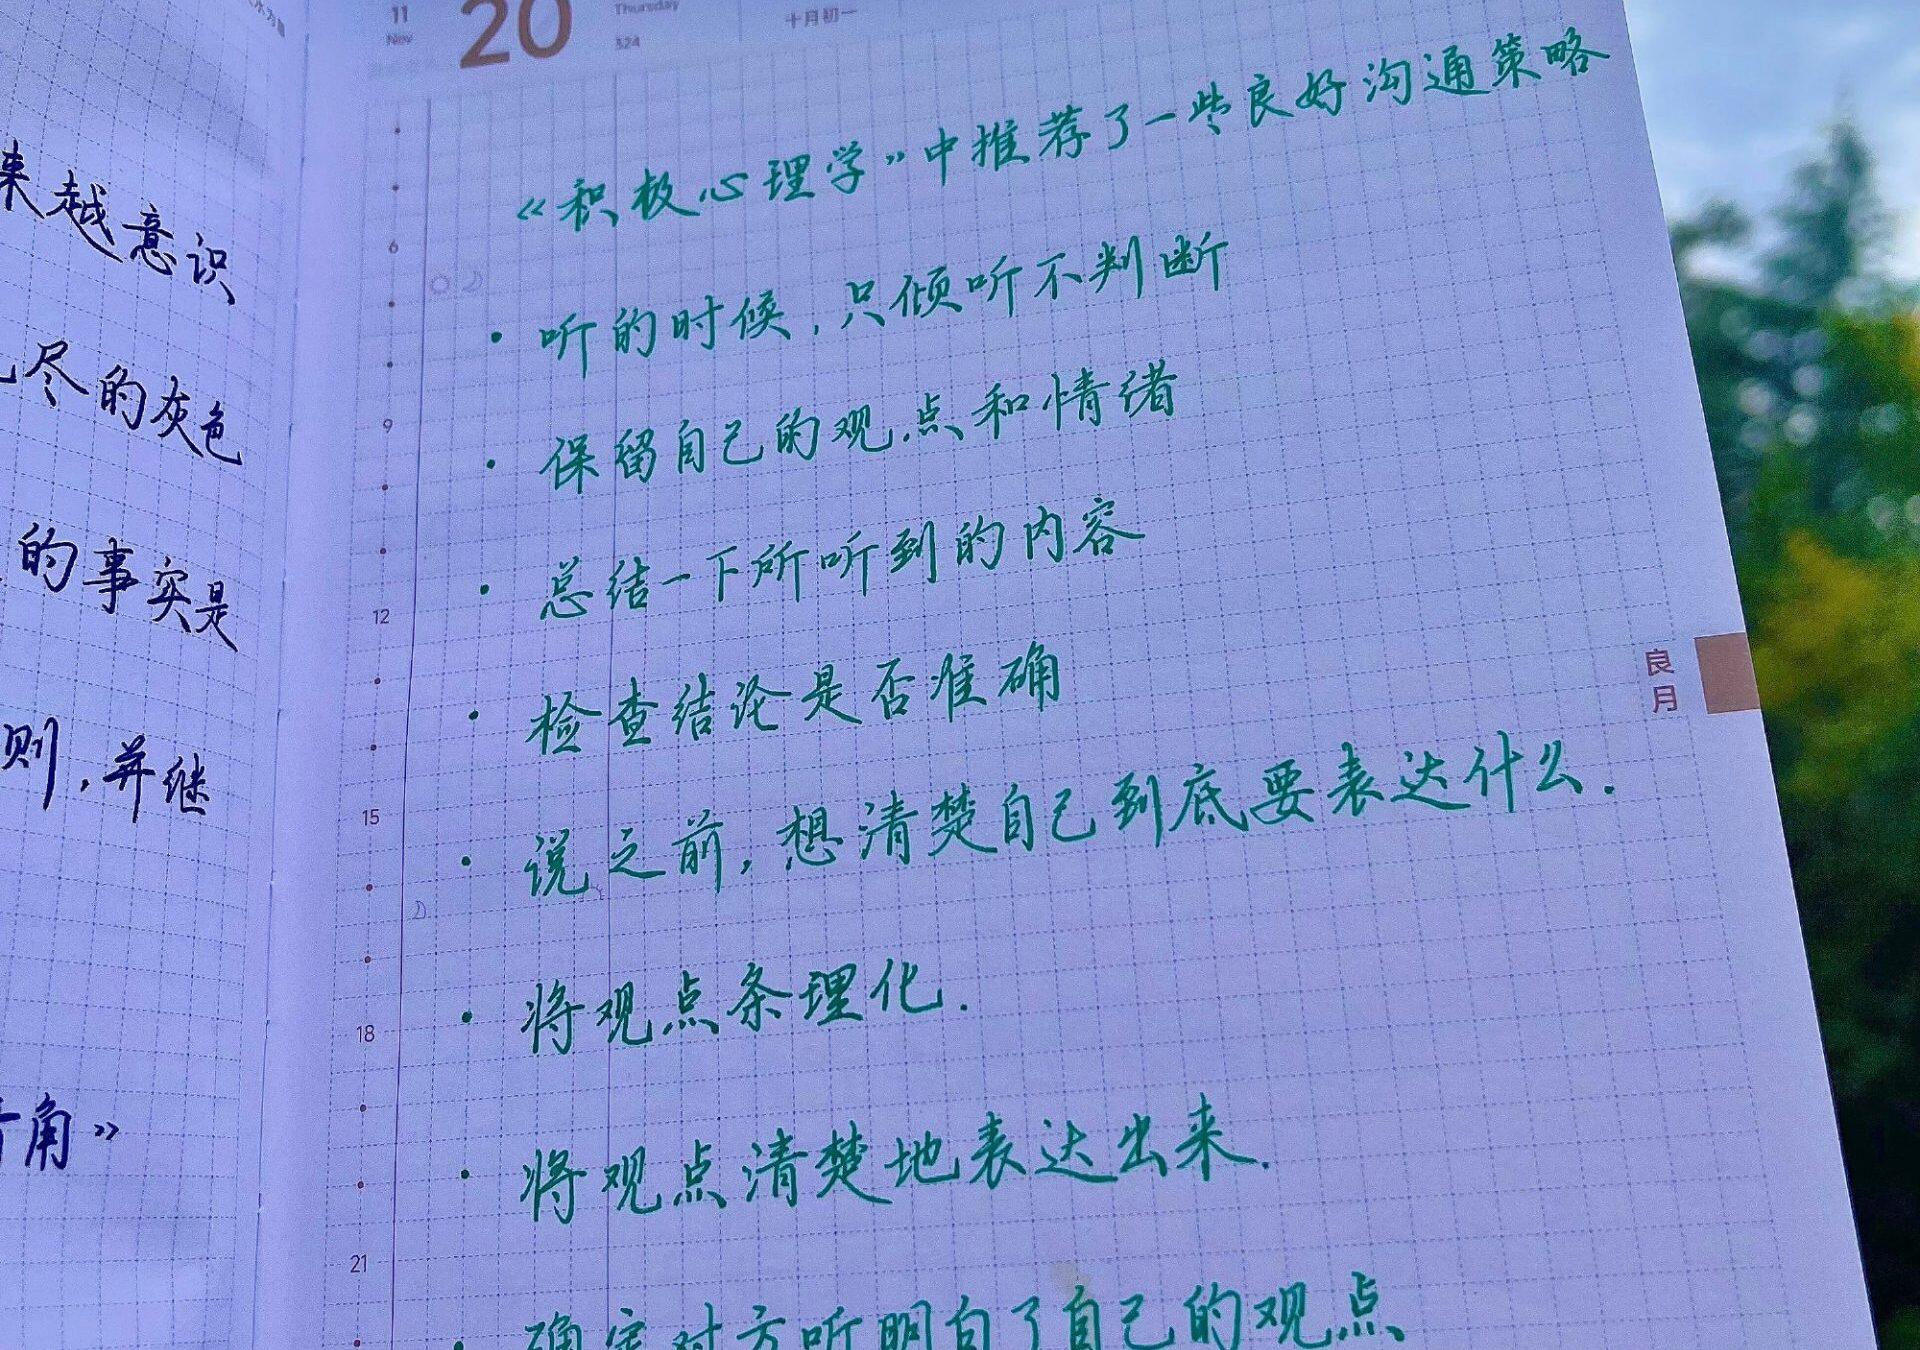 来越意识
尽的灰色
的事实是
则，并继
角》
11
Nov
20
Thursday
324
十月初一
《积极心理学》中推荐了一些良好沟通策略
6
· 听的时候，只倾听不判断
9
· 保留自己的观点和情绪
· 总结一下所听到的内容
12
· 检查结论是否准确
良月
15
· 说之前，想清楚自己到底要表达什么.
· 将观点条理化.
18
· 将观点清楚地表达出来.
21
· 确定对方听明白了自己的观点